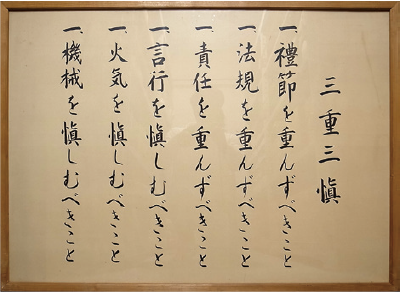 三重三愼
一、禮節を重んずべきこと
一、法規を重んずべきこと
一、責任を重んずべきこと
一、言行を愼しむべきこと
一、火気を愼しむべきこと
一、機械を愼しむべきこと